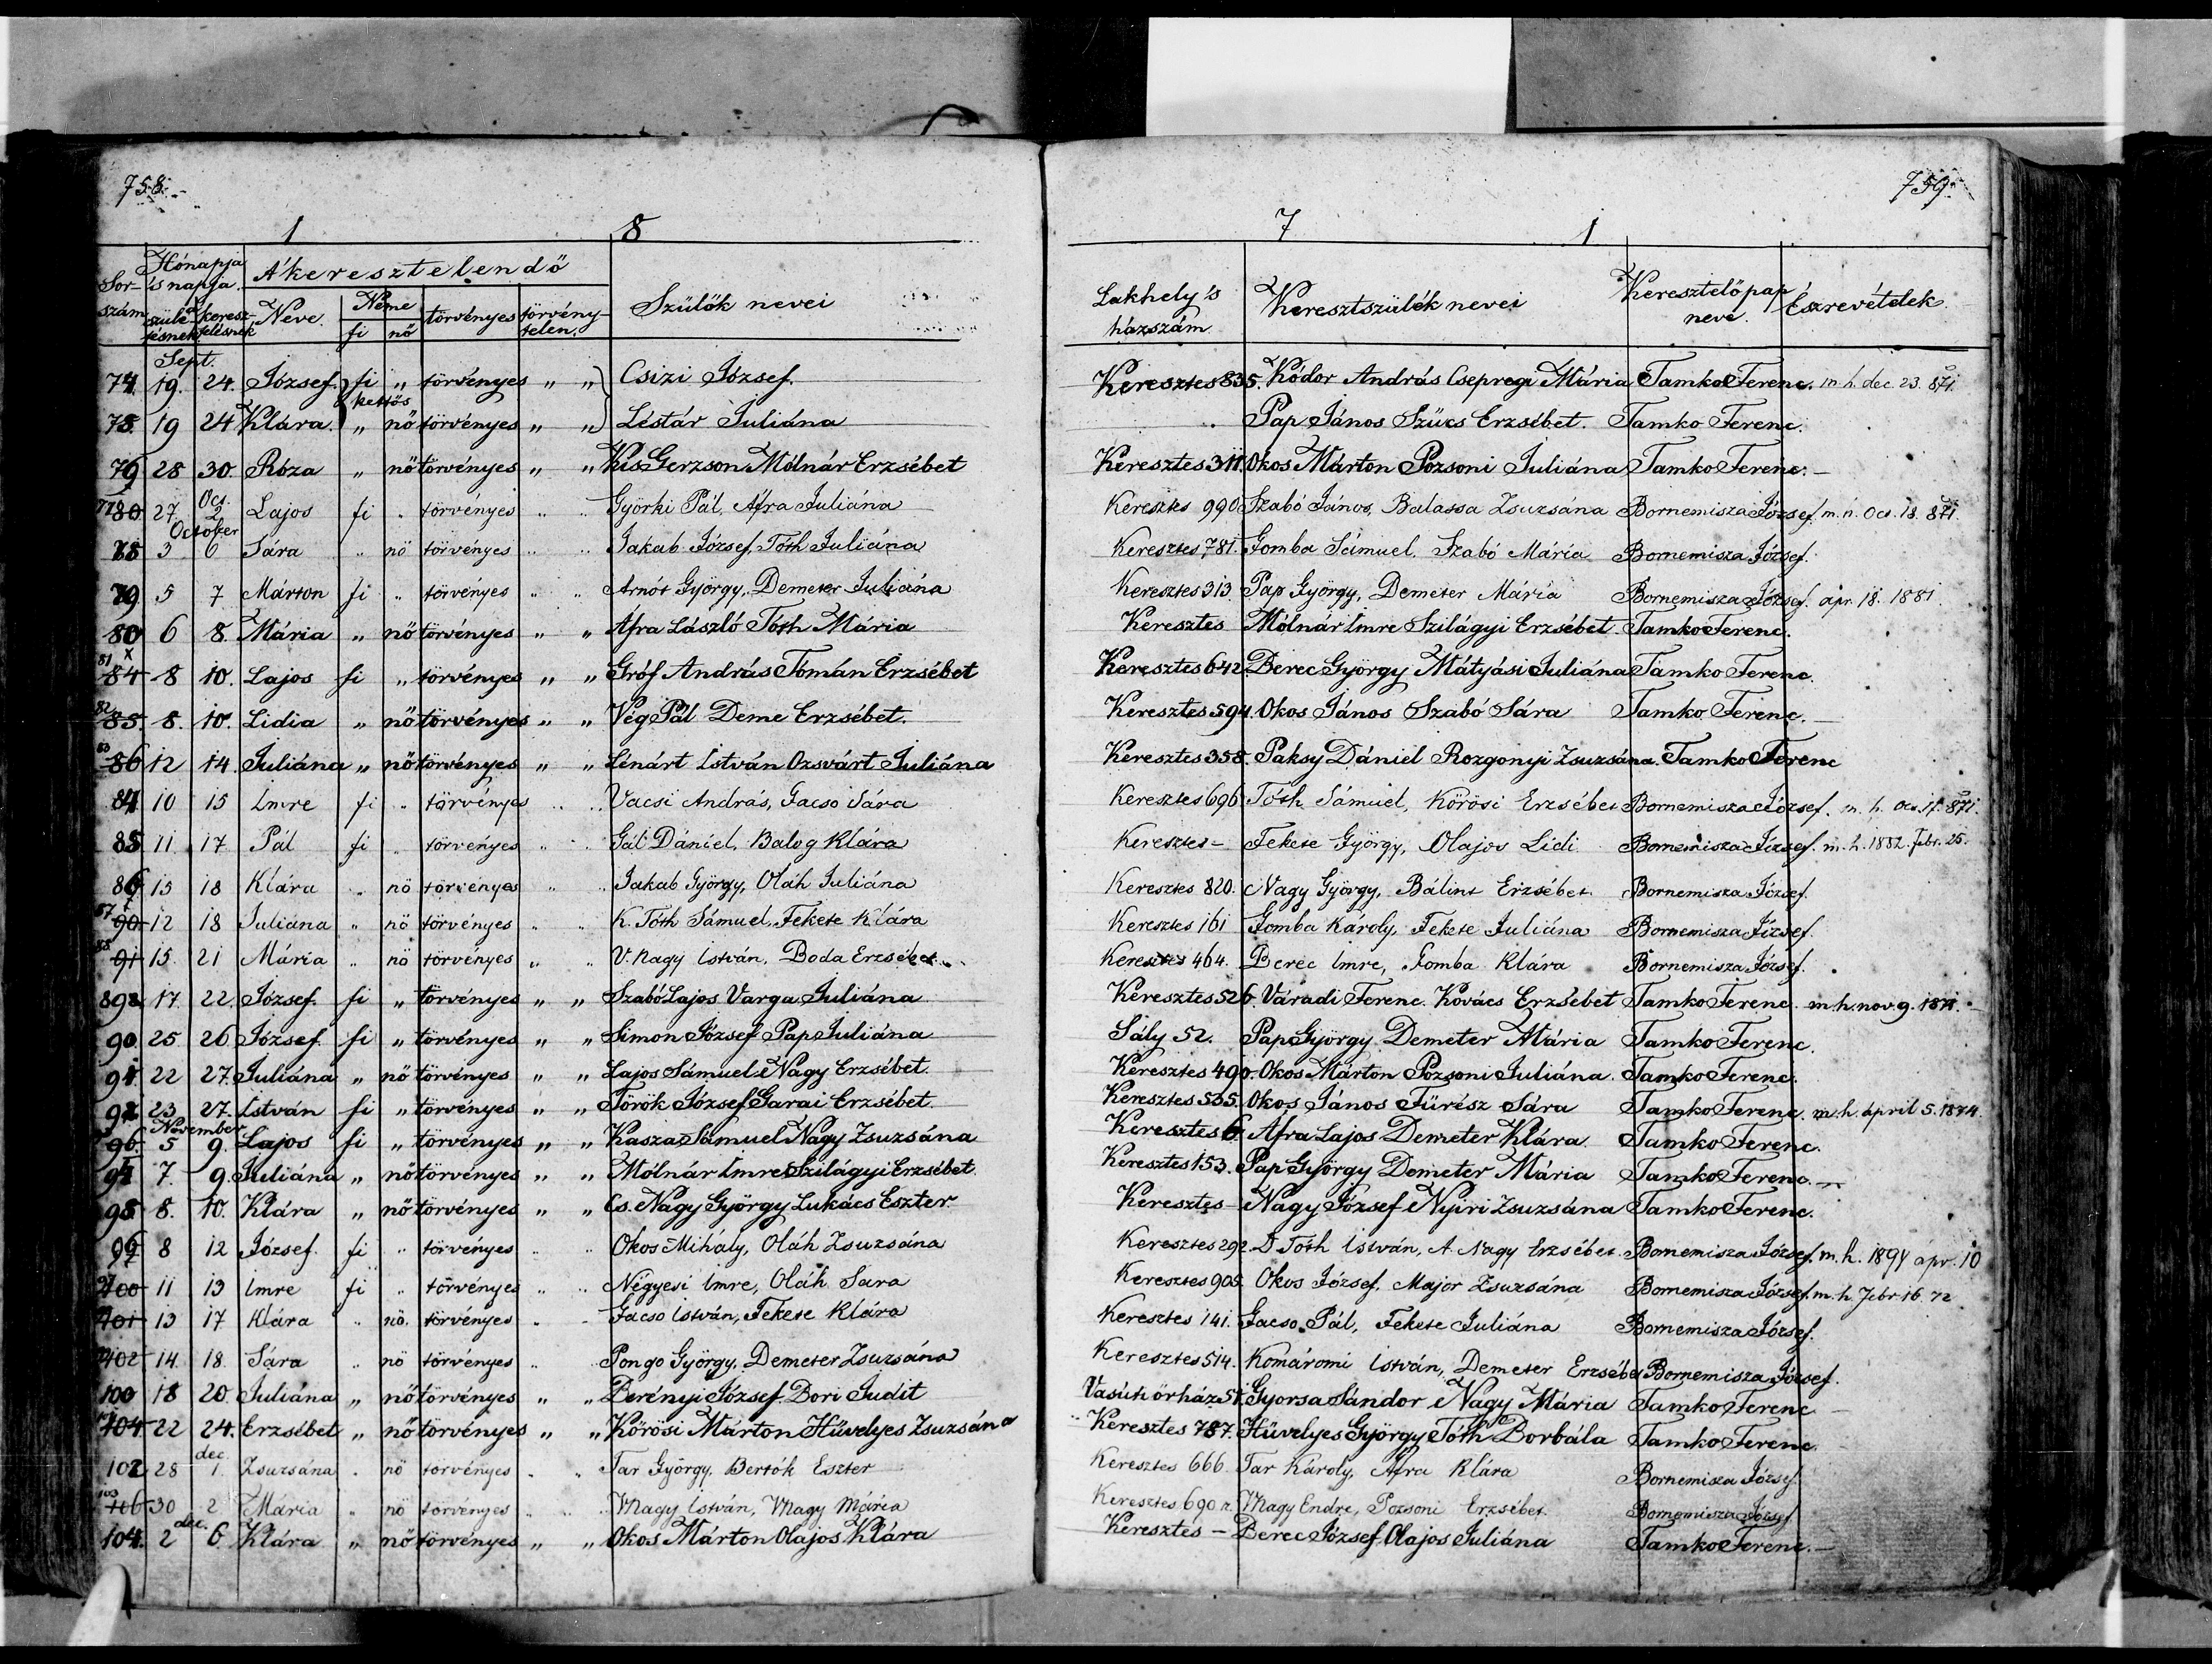 758.
759.
1 8 7 1
Sor-szám Hónapja is napja A' keresztelendő Szülők nevei Lakhely 's házszám Keresztszülék nevei Keresztelő pap neve Észrevételek
születésnek keresztelésnek Neve. Neme törvényes törvénytelen.
fi nő
Sept.
74 19. 24. József. fi „ törvényes „ „ Csizi József. Keresztes 835. Kódor András Csepregi Mária Tamko Ferenc. m. h. dec. 23. 871.
kettős
75 19 24 Klára. „ nő törvényes „ „ Léstár Juliána Pap János Szűcs Erzsébet. Tamko Ferenc.
76 28 30. Róza „ nő törvényes „ „ Kis Gerzson Mólnár Erzsébet Keresztes 311. Okos Márton Pozsoni Juliána Tamko Ferenc.
77 80 27 Oct. 2 Lajos fi „ törvényes „ „ Györki Pál, Áfra Juliána Keresztes 990 Szabó János, Balassa Zsuzsána Bornemisza József. m. h. Oct. 18. 871.
October
78 3 6 Sára „ nő törvényes „ „ Jakab József, Tóth Juliána Keresztes 781. Gomba Sámuel. Szabó Mária Bornemisza József.
79 5 7 Márton fi „ törvényes „ „ Arnót György, Demeter Juliána Keresztes 313. Pap György, Demeter Mária Bornemisza József. ápr. 18. 1881.
80 6 8. Mária „ nő törvényes „ „ Áfra László Tóth Mária Keresztes Mólnár Imre Szilágyi Erzsébet. Tamko Ferenc.
81 x
84 8 10. Lajos fi „ törvényes „ „ Gróf András Tómán Erzsébet Keresztes 642. Berec György Mátyási Juliána Tamko Ferenc.
82 85. 8. 10. Lidia „ nő törvényes „ „ Vég Pál Deme Erzsébet. Keresztes 594. Okos János Szabó Sára Tamko Ferenc.
83 86 12 14. Juliána „ nő törvényes „ „ Lénárt István Ozsvárt Juliána Keresztes 358. Paksy Dániel Rozgonyi Zsuzsána. Tamko Ferenc
84 10 15 Imre fi „ törvényes „ „ Vacsi András, Gacso Sára Keresztes 696 Tóth Sámuel, Körösi Erzsébet Bornemisza József. m. h. Oct. 17. 871.
85 11. 17. Pál fi „ törvényes „ „ Gál Dániel, Balog Klára Keresztes - Fekete György, Olajos Lidi Bornemisza József. m. h. 1882. Febr. 25.
86 15 18 Klára „ nő törvényes „ „ Jakab György, Oláh Juliána Keresztes 820. Nagy György, Bálint Erzsébet Bornemisza József.
87 90 12 18 Juliána „ nő törvényes „ „ K. Tóth Sámuel, Fekete Klára Keresztes 161 Gomba Károly, Fekete Juliána Bornemisza József.
88 91 15. 21 Mária „ nő törvényes „ „ V. Nagy István, Boda Erzsébet Keresztes 464. Berec Imre, Gomba Klára Bornemisza József.
89 17. 22. József. fi „ törvényes „ „ Szabó Lajos Varga Juliána Keresztes 526. Váradi Ferenc. Kovács Erzsébet Tamko Ferenc. m. h. nov. 9. 1871.
90. 25 26. József. fi „ törvényes „ „ Simon József Pap Juliána Sály 52. Pap György Demeter Mária Tamko Ferenc.
91. 22 27. Juliána „ nő törvényes „ „ Lajos Sámuel Nagy Erzsébet. Keresztes 490. Okos Márton Pozsoni Juliána. Tamko Ferenc.
92 23 27. István fi „ törvényes „ „ Török József Garai Erzsébet. Keresztes 535. Okos János Fürész Sára Tamko Ferenc. m. h. ápril 5. 1874.
November
96 5 9. Lajos fi „ törvényes „ „ Kasza Sámuel Nagy Zsuzsána Keresztes 6. Áfra Lajos Demeter Klára Tamko Ferenc.
94 7. 9. Juliána „ nő törvényes „ „ Mólnár Imre Szilágyi Erzsébet. Keresztes 153. Pap György Demeter Mária Tamko Ferenc.
95 8. 10. Klára „ nő törvényes „ „ Cs. Nagy György Lukács Eszter. Keresztes - Nagy József Nyiri Zsuzsána Tamko Ferenc.
96 8 12 József. fi „ törvényes „ „ Okos Mihály, Oláh Zsuzsána Keresztes 292. D Tóth István, A. Nagy Erzsébet. Bornemisza József. m. h. 1894 ápr. 10
100 11 13 Imre fi „ törvényes „ „ Négyesi Imre, Oláh Sara Keresztes 905. Okos József, Major Zsuzsána Bornemisza József. m. h. Febr 16. 72
101 13 17 Klára „ nő. törvényes „ „ Gacso István, Fekete Klára Keresztes 141. Gacso Pál, Fekete Juliána Bornemisza József.
102 14. 18. Sára „ nő törvényes „ Pongo György, Demeter Zsuzsána Keresztes 514. Komáromi István, Demeter Erzsébet Bornemisza József.
100 18 20. Juliána „ nő törvényes „ „ Berényi József Bori Judit Vasúti örház 57. Gyorsa Sándor Nagy Mária Tamko Ferenc
104 22 24. Erzsébet „ nő törvényes „ „ Körösi Márton Hüvelyes Zsuzsána Keresztes 787. Hüvelyes György Tóth Borbála Tamko Ferenc.
102 28 dec. 1. Zsuzsána „ nő törvényes „ „ Tar György, Bertók Eszter Keresztes 666. Tar Károly, Áfra Klára Bornemisza József.
103 106 30 2 Mária „ nő törvényes „ „ V Nagy István, V Nagy Mária Keresztes 690 V Nagy Endre, Pozsoni Erzsébet. Bornemisza József.
dec.
104. 2 6. Klára „ nő törvényes „ „ Okos Márton Olajos Klára Keresztes - Berec József Olajos Juliána Tamko Ferenc.